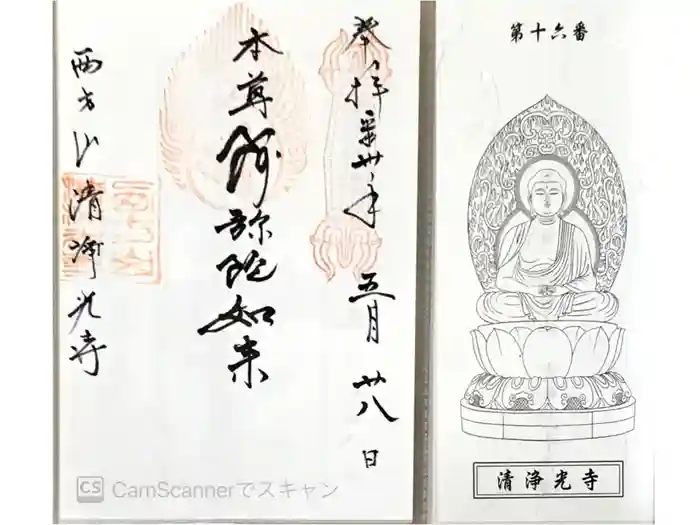 奉拝 平卅年 五月 廿八日
本尊 阿弥陀如来
西方山 清浄光寺
CS CamScannerでスキャン
第十六番
清浄光寺